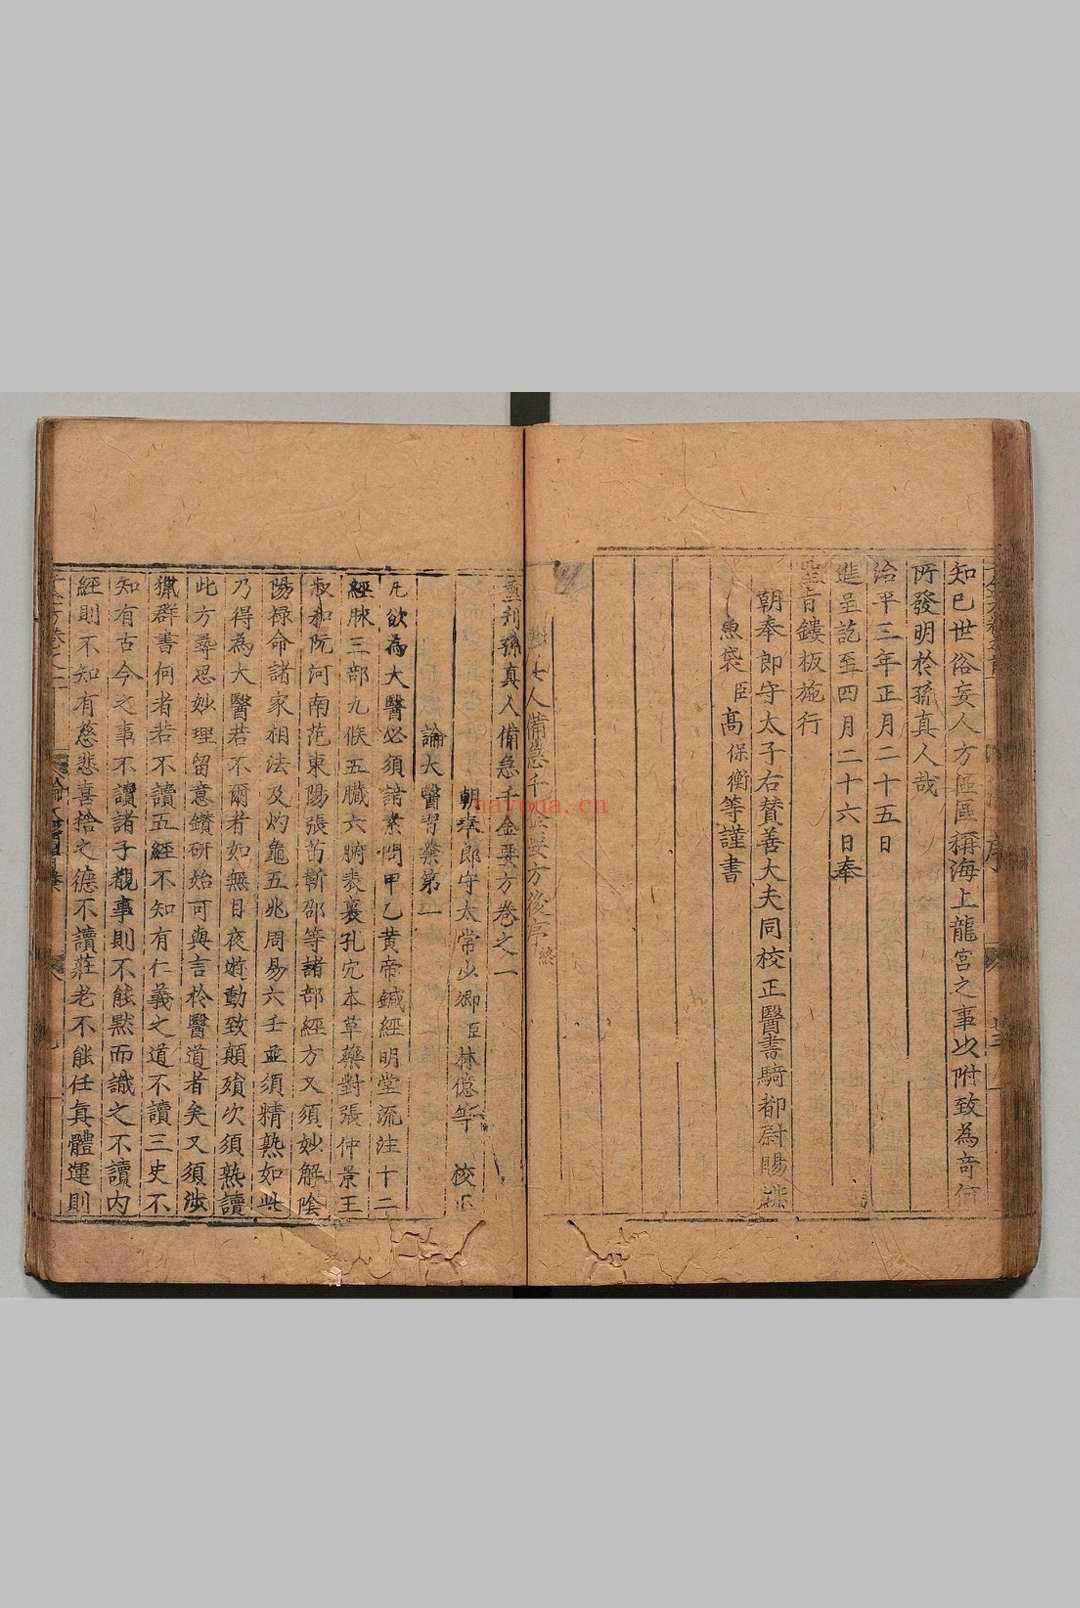 知已世俗妄人方區區稱海上龍宮之事以附致為奇何
所發明於孫真人哉
治平三年正月二十五日
進呈訖至四月二十六日奉
聖旨鏤板施行
朝奉郎守太子右贊善大夫同校正醫書騎都尉賜緋
魚袋臣高保衡等謹書
人備急千金要方後序 終
重刊孫真人備急千金要方卷之一
朝奉郎守太常少卿臣林億等 校正
論大醫習業第一
凡欲為大醫必須諳素問甲乙黃帝鍼經明堂流注十二
經脉三部九候五臓六腑表裏孔穴本草藥對張仲景王
叔和阮河南范東陽張苗靳邵等諸部經方又須妙解陰
陽禄命諸家相法及灼龜五兆周易六壬並須精熟如此
乃得為大醫若不爾者如無目夜遊動致顛殞次須熟讀
此方尋思妙理留意鑚研始可與言於醫道者矣又須涉
獵群書何者若不讀五經不知有仁義之道不讀三史不
知有古今之事不讀諸子覩事則不能默而識之不讀内
經則不知有慈悲喜捨之德不讀莊老不能任真體運則
nayona.cn